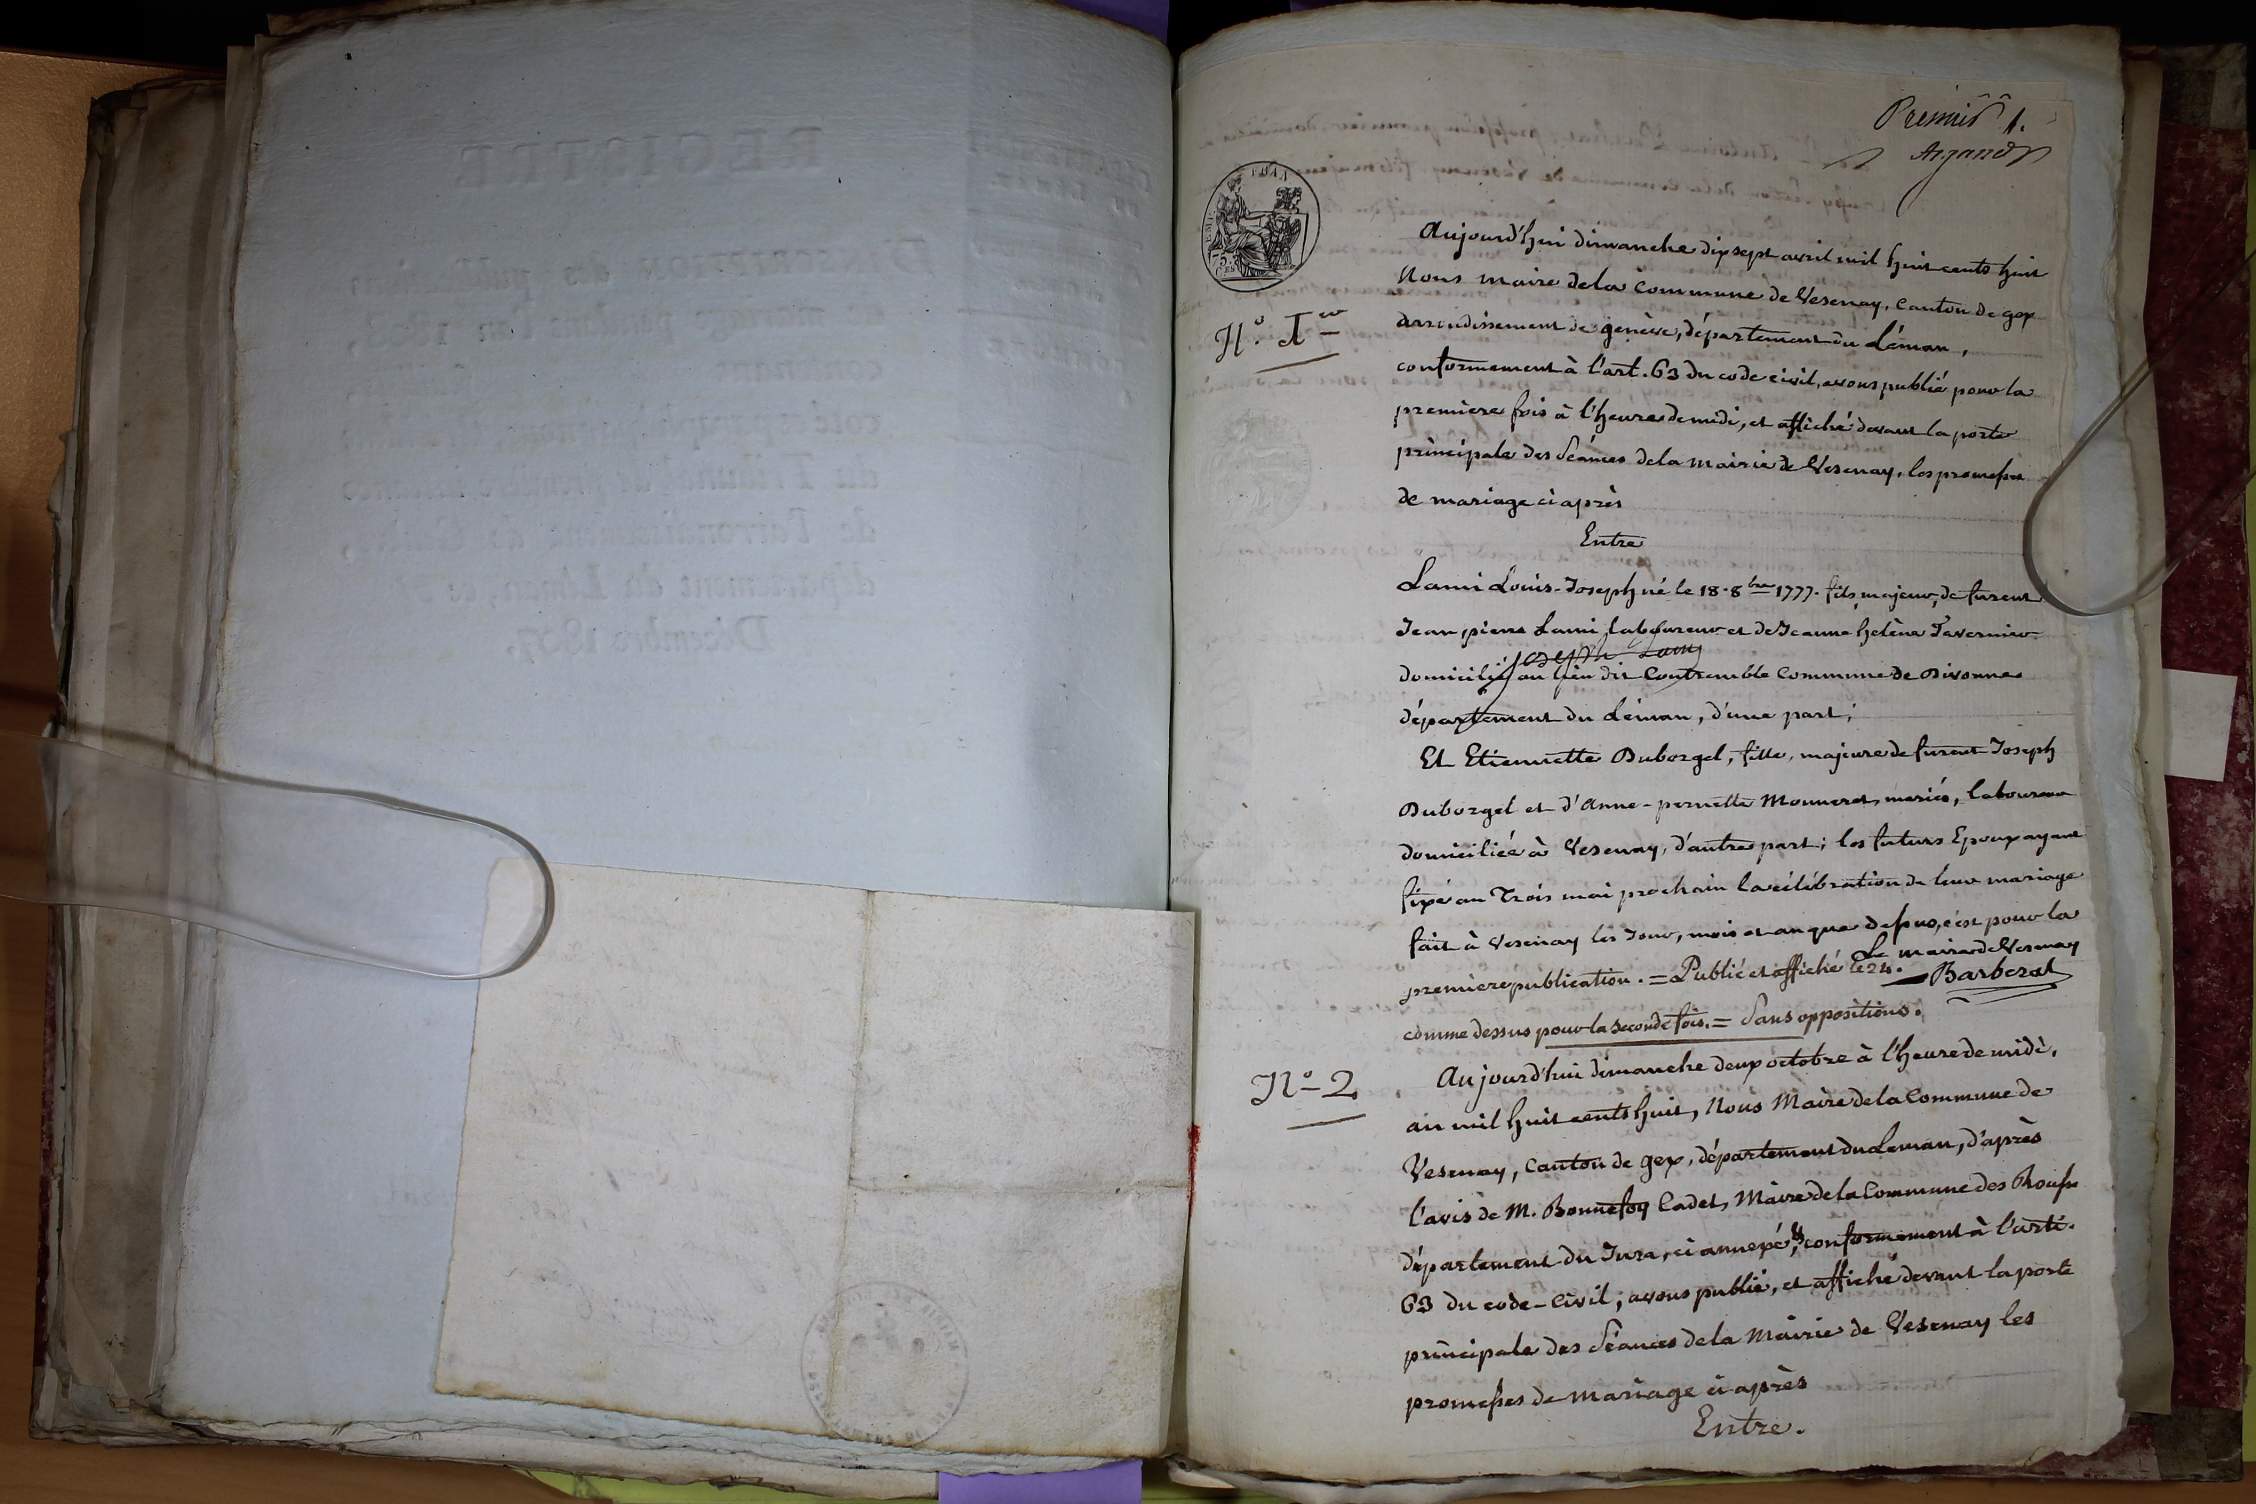 Premier 1.
Argand
EMP.
75.
C.ES
N.o 1er
Aujourd'hui dimanche dix sept avril mil huit cents huit
Nous maire de la Commune de Vesenay, Canton de gex
arrondissement de genève, département du Léman,
conformement à l'art. 63 du code civil, avons publié pour la
première fois à l'heure de midi, et affiché devant la porte
principale des Séances de la Mairie de Vesenay, les promesses
de mariage ci après
Entre
Lami Louis-Joseph né le 18. 8bre 1777. fils, majeur, de furent
Jean, pierre Lami, laboureur et de Jeanne helène Tavernier
Joseph Lamy
domicilié au lieu dit Contremble Commune de Divonne
département du Léman, d'une part;
Et Etiennette Duborgel, fille, majeure de furent Joseph
Duborgel et d'Anne-pernette Monneret, mariés, laboureur
domiciliée à Vesenay, d'autre part; les futurs Epoux ayant
fixé au Trois mai prochain la célébration de leur mariage
fait à Vesenay les Jour, mois et an que dessus, c'est pour la
première publication. = Publié et affiché le 24.
Le maire de Vesenay
Barberat
comme dessus pour la seconde fois. = Sans oppositions.
N.o 2
Aujourd'hui dimanche deux octobre à l'heure de midi,
an mil huit cents huit, Nous Maire de la Commune de
Vesenay, Canton de gex, département du Leman, d'après
l'avis de M. Bonnefoy Cadet, Maire de la Commune des Rousses
département du Jura, ci annexé, conformement à l'arti.
63 du code-Civil; avons publié, et affiché devant la porte
principale des Séances de la Mairie de Vesenay les
promesses de mariage ci après
Entre.